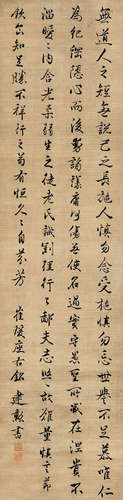 無道人之短無說己之長施人慎勿念受施慎勿忘世譽不足慕唯仁
為紀綱隱心而後動謗議庸何傷無使名過實守愚聖所臧在涅貴不
淄曖曖內含光柔弱生之徒老氏誡剛強行行鄙夫志悠悠故難量慎言節
飲食知足勝不祥行之苟有恆久久自芬芳
崔瑗座右銘 建彰書